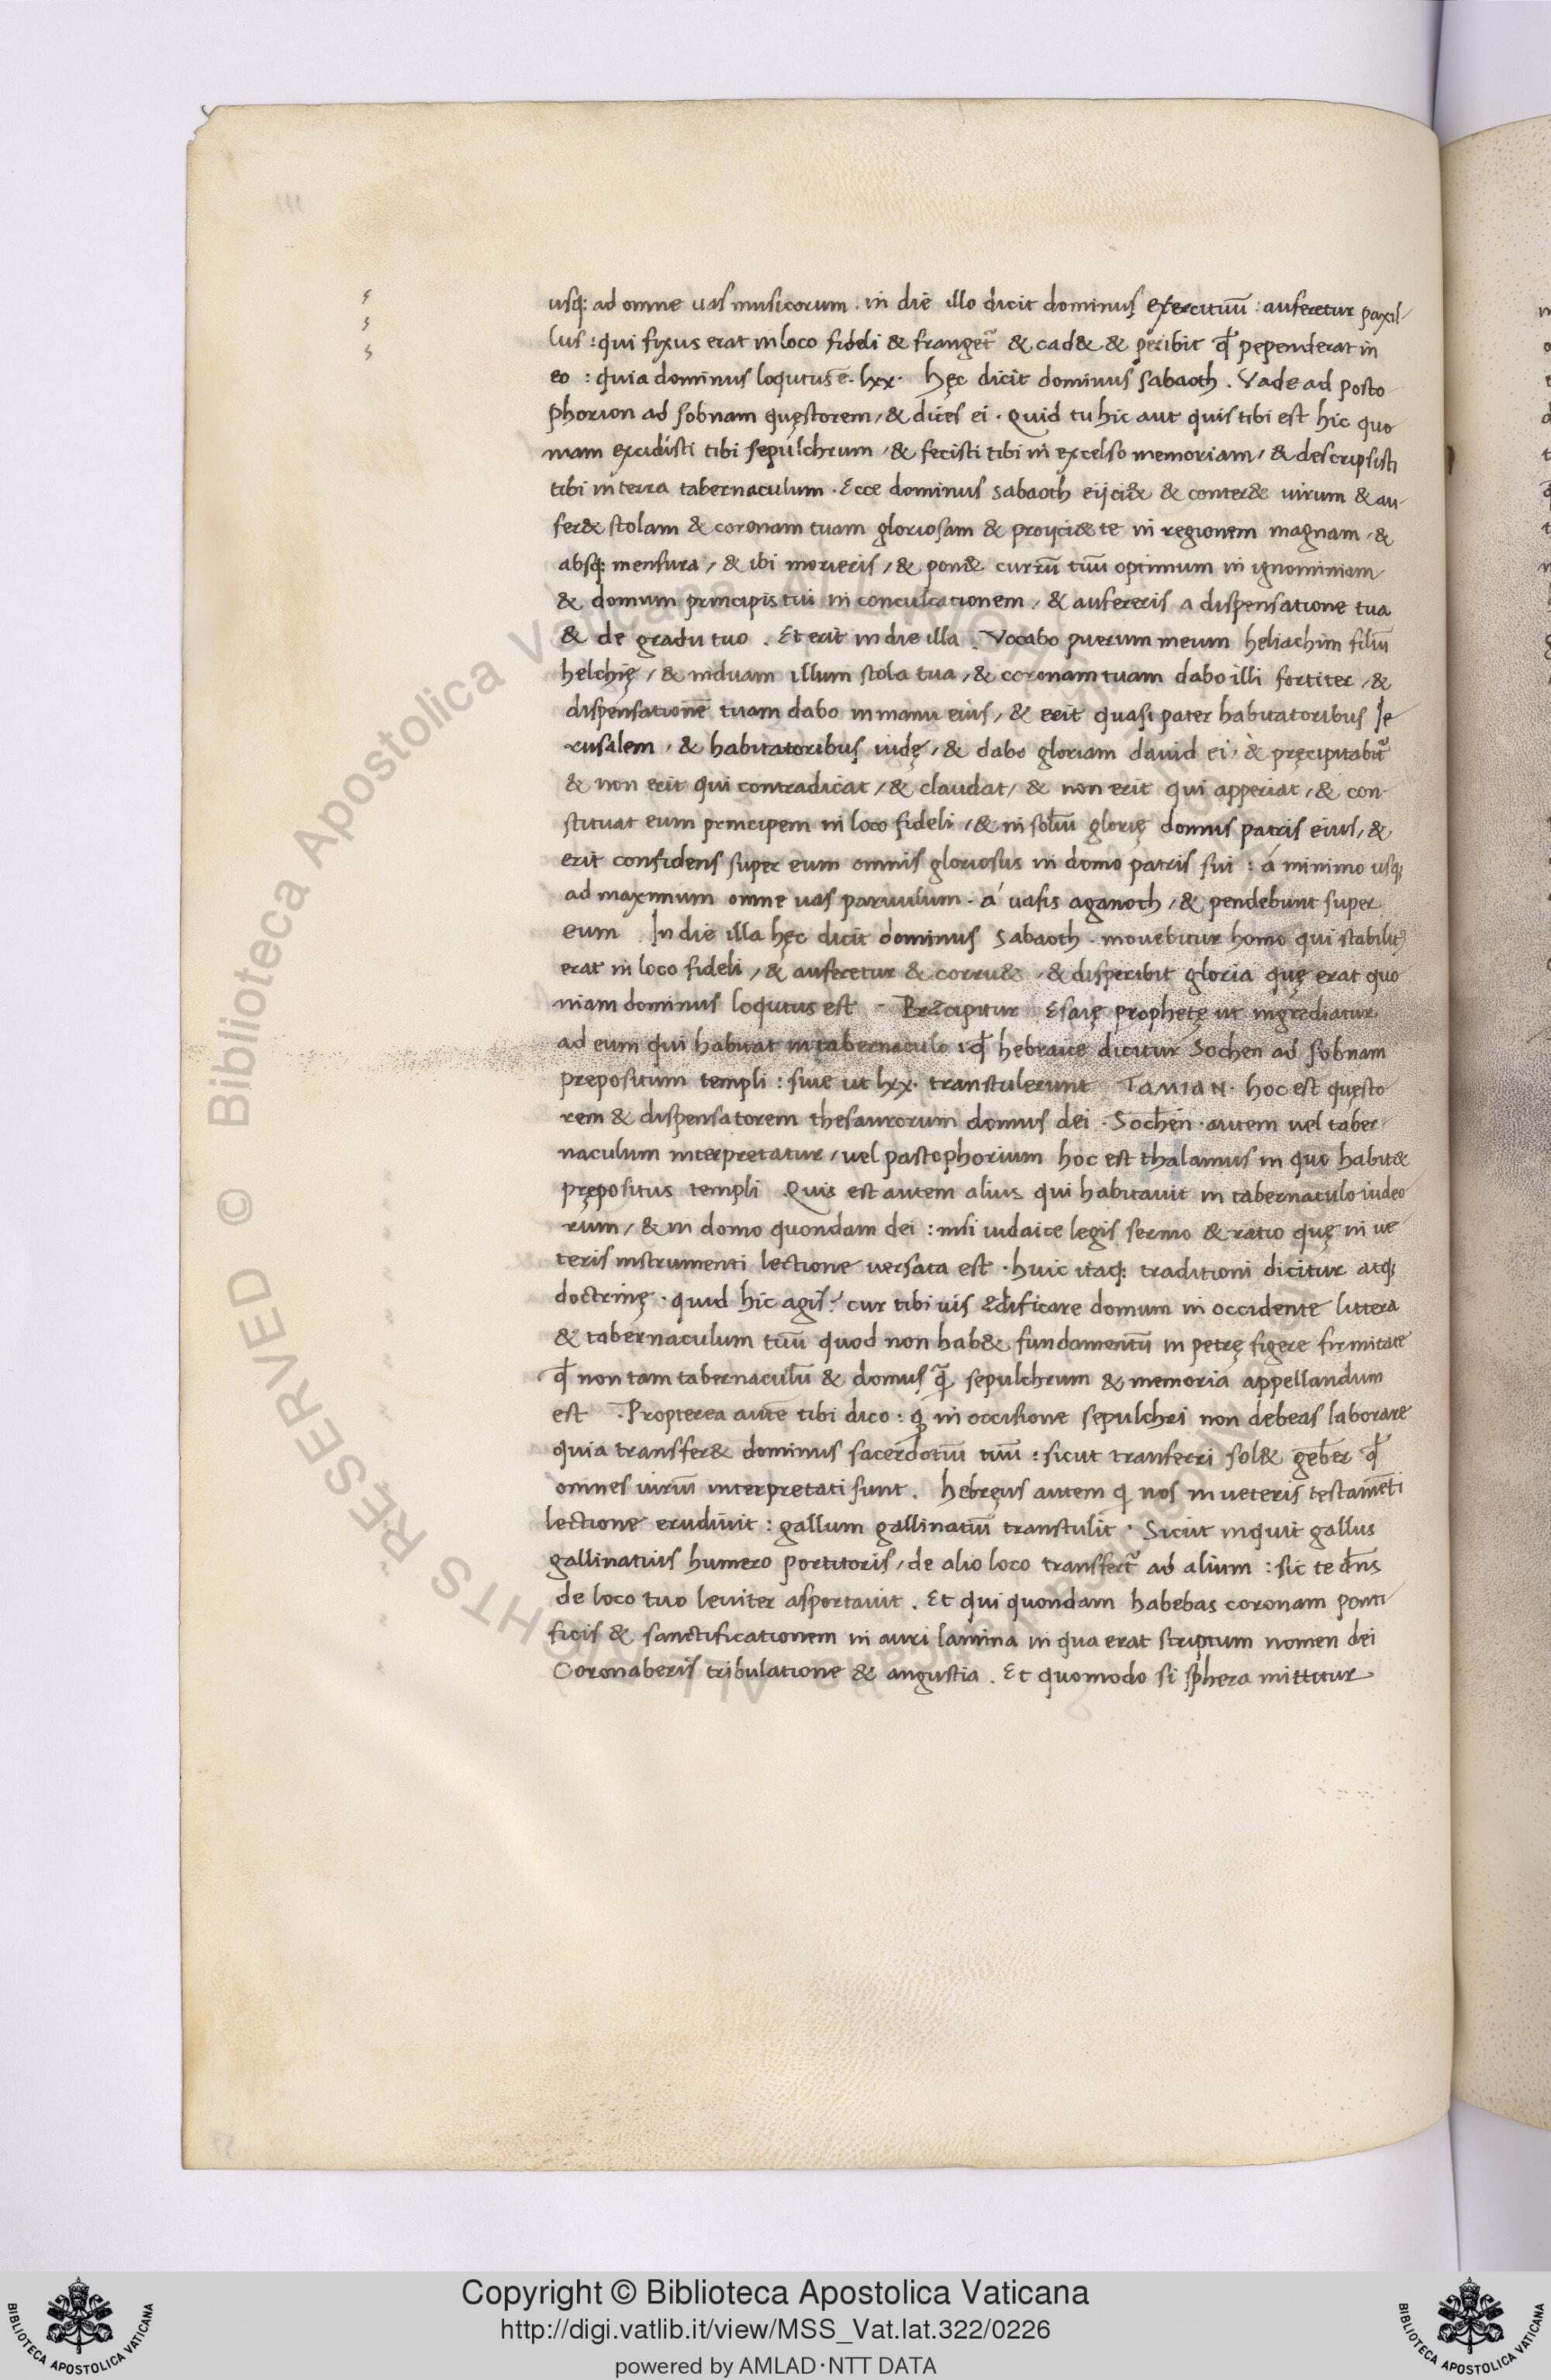 usq: ad omne uas musicorum. in die illo dicit dominus exercituũ: auferetur paxil-
lus: qui fixus erat in loco fideli & franget᷑ & cad& & peribit qđ pependerat in
eo: quia dominus loqutus ē. lxx. hęc dicit dominus sabaoth. Vade ad posto-
phorion ad sobnam quęstorem, & dices ei. Quid tu hic aut quis tibi est hic quo
niam excidisti tibi sepulchrum, & fecisti tibi in excelso memoriam, & descripsisti
tibi in terra tabernaculum. Ecce dominus sabaoth eijci& & conter& uirum & au-
fer& stolam & coronam tuam gloriosam & proijci& te in regionem magnam, &
absq: mensura, & ibi morieris, & pon& currũ tuũ optimum in ignominiam
& domum principis tui in conculcationem, & aufereris a dispensatione tua
& de gradu tuo. Et erit in die illa. Vocabo puerum meum heliachim filiũ
helchię, & induam illum stola tua, & coronam tuam dabo illi fortiter, &
dispensationẽ tuam dabo in manu eius, & erit quasi pater habitatoribus Ie
rusalem, & habitatoribus iudę, & dabo gloriam dauid ei, & pręcipitabit᷑
& non erit qui contradicat, & claudat, & non erit qui apperiat, & con-
stituat eum principem in loco fideli, & in soliũ glorię domus patris eius, &
erit confidens super eum omnis gloriosus in domo patris sui: á minimo usq:
ad maximum omne uas paruulum. á uasis aganoth, & pendebunt super
eum In die illa hęc dicit dominus Sabaoth. mouebitur homo qui stabilit᷑
erat in loco fideli, & auferetur & corru&, & disperibit gloria quę erat quo
niam dominus loqutus est - Pręcipitur Esaię prophetę ut ingrediatur
ad eum qui habitat in tabernaculo: qđ hebraice dicitur Sochen ad sobnam
prepositum templi: siue ut lxx. transtulerunt TAMIAN. hoc est quęsto
rem & dispensatorem thesaurorum domus dei. Sochen. autem uel taber-
naculum interpretatur, uel pastophorium hoc est thalamus in quo habit&
prępositus templi Quis est autem alius qui habitauit in tabernaculo iudeo
rum, & in domo quondam dei: nisi iudaice legis sermo & ratio quę in ue
teris instrumenti lectione uersata est. huic itaq: traditioni dicitur atq:
doctrinę. quid hic agis? cur tibi uis ędificare domum in occidente littera
& tabernaculum tuũ quod non hab& fundamentũ in petrę figere firmitate
qđ non tam tabernaculũ & domus q̃ sepulchrum & memoria appellandum
est. Propterea autẽ tibi dico: ꝙ in occisione sepulchri non debeas laborare
quia transfer& dominus sacerdotiũ tuũ: sicut tranferri sol& geber qđ
omnes uirũ interpretati sunt. hebręus autem q nos in ueteris testamẽti
lectione erudiuit: gallum gallinatiũ transtulit. Sicut inquit gallus
gallinatius humero portitoris, de alio loco transfert᷑ ad alium: sic te dñs
de loco tuo leuiter asportauit. Et qui quondam habebas coronam ponti
ficis & sanctificationem in auri lamina in qua erat scriptum nomen dei
Coronaberis tribulatione & angustia. Et quomodo si sphera mittitur
Copyright © Biblioteca Apostolica Vaticana
http://digi.vatlib.it/view/MSS_Vat.lat.322/0226
powered by AMLAD·NTT DATA